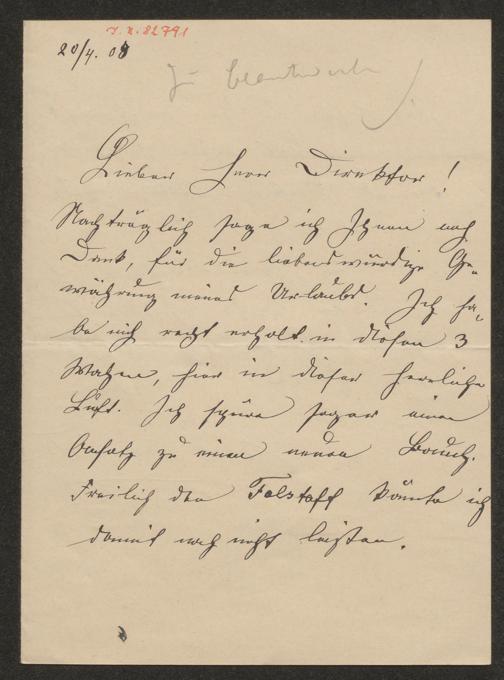 J. N. 82791
20/4. 08
Zu beantworten
Lieber Herr Direktor!
Nachträglich sage ich Ihnen noch
Dank, für die liebenswürdige Ge-
währung meines Urlaubs. Ich ha-
be mich recht erholt in diesen 3
Wochen, hier in dieser herrlichen
Luft. Ich spüre sogar einen
Ansatz zu einem neuen Bauch.
Freilich den Falstaff könnte ich
damit noch nicht leisten.